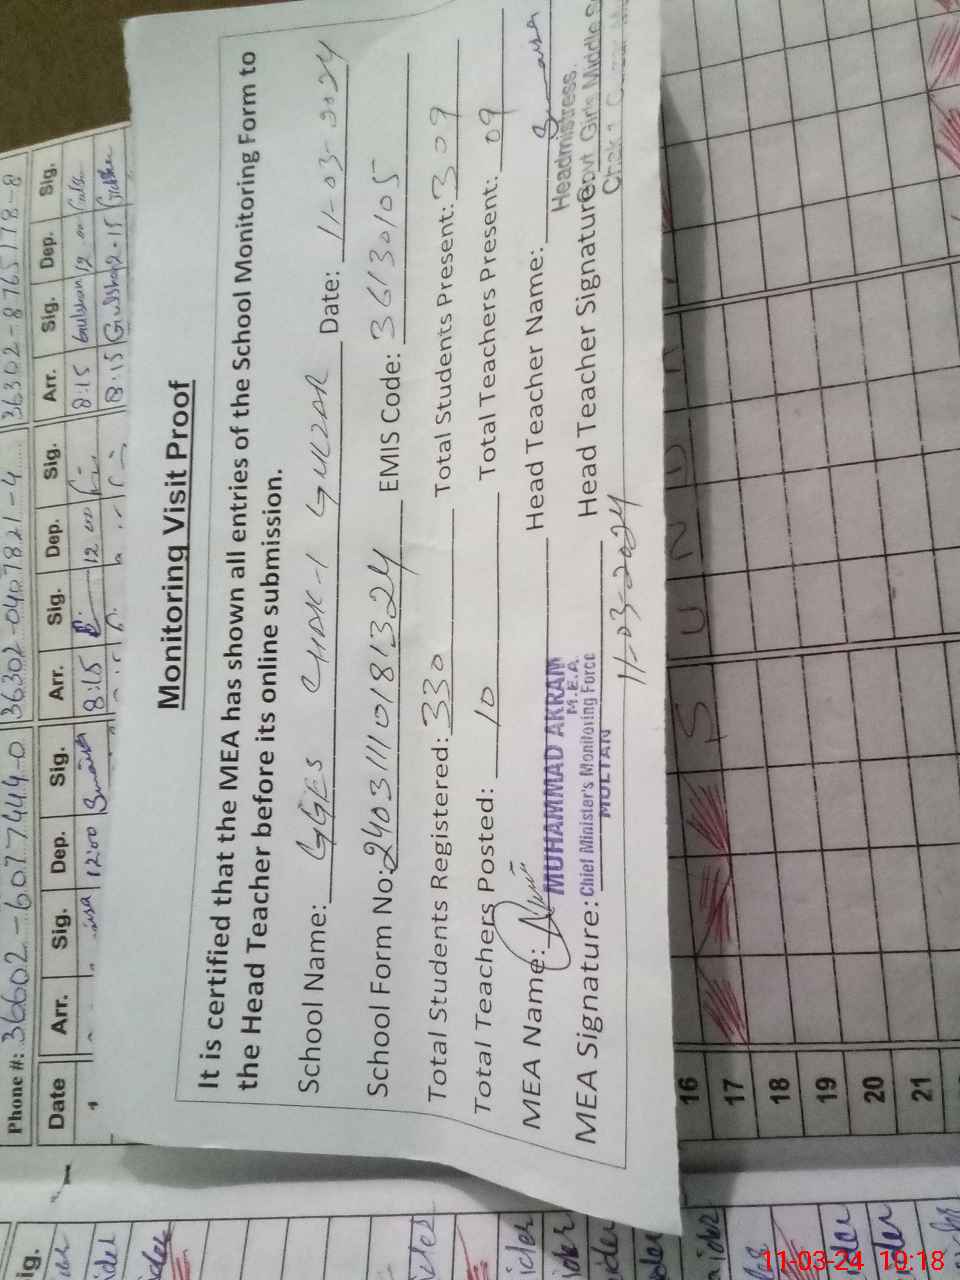 Monitoring Visit Proof
It is certified that the MEA has shown all entries of the School Monitoring Form to
the Head Teacher before its online submission.
School Name: GGES CHAK-1 GULZAR Date: 11-03-2024
School Form No: 2403111018 1324 EMIS Code: 36130105
Total Students Registered: 330 Total Students Present: 309
Total Teachers Posted: 10 Total Teachers Present: 09
MEA Name: MUHAMMAD AKRAM Head Teacher Name:
M.E.A.
MEA Signature: Chief Minister's Monitoring Force Head Teacher Signature:
MULTAN
11-03-2024
Headmistress.
Govt Girls Middle S
Chak 1
Phone #: 36602-6077444-0 36302-0407821-4 36302-8765178-8
Date Arr. Sig. Dep. Sig. Arr. Sig. Dep. Sig. Arr. Sig. Dep. Sig.
12:00 8:15 12 00 8:15 Gulshan 12
8:15 Gulshan 2-15
16 S U N D A Y
17
18
19
20
21
ig.
11-03-24 10:18